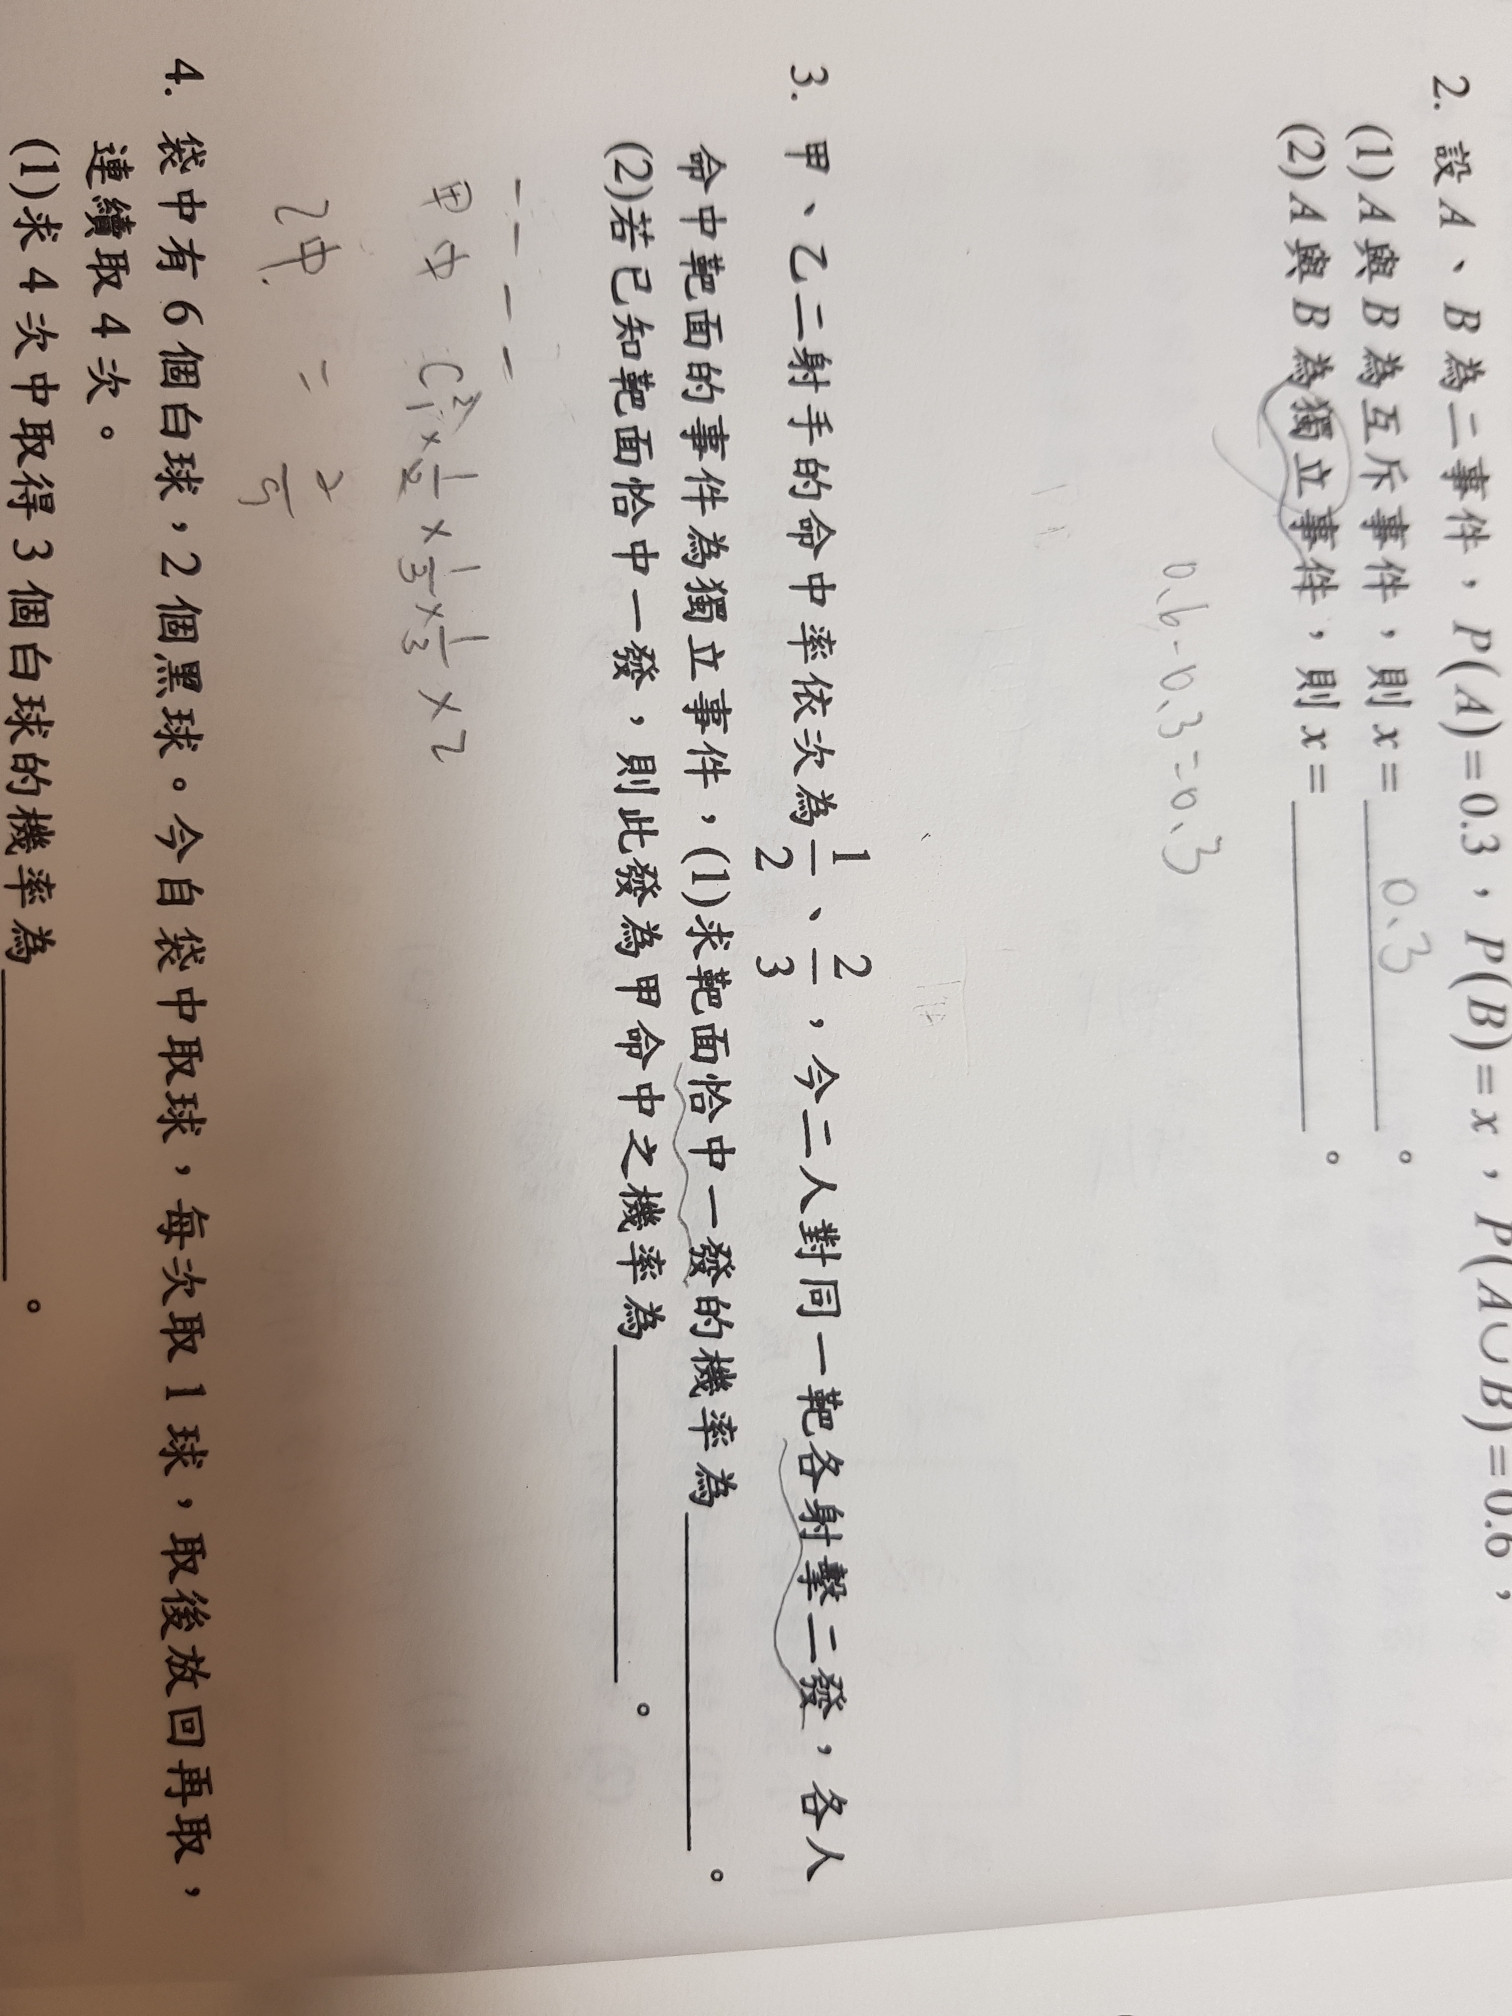 2. 設 A、B 為二事件，P(A)=0.3，P(B)=x，P(A∪B)=0.6，
(1) A 與 B 為互斥事件，則 x= 0.3 。
(2) A 與 B 為獨立事件，則 x= ______ 。
0.6-0.3=0.3
3. 甲、乙二射手的命中率依次為 1/2、2/3，今二人對同一靶各射擊二發，各人
命中靶面的事件為獨立事件，(1)求靶面恰中一發的機率為 ______ 。
(2)若已知靶面恰中一發，則此發為甲命中之機率為 ______ 。
甲中 C²₁ × 1/2 × 1/3 × 1/3 × 2
乙中 = 2/9
4. 袋中有 6 個白球，2 個黑球。今自袋中取球，每次取 1 球，取後放回再取，
連續取 4 次。
(1)求 4 次中取得 3 個白球的機率為 ______ 。